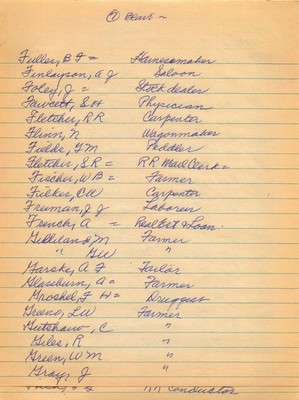 Fuller, B F = Harnessmaker
Finlayson, A J Saloon
Foley, J = Stock dealer
Fawcett, S H Physician
Fletcher, R R Carpenter
Flinn, N Wagonmaker
Fields, T M Peddler
Fletcher, S R = R R Mail Clerk =
Fischer, W B = Farmer
Fulker, C W Carpenter
Freeman, J J Laborer
French, A = Real Est & Loan
Gilliland M Farmer
" G W "
Garske, A F Tailor
Glassburn, A = Farmer
Groshel, F H = Druggist
Greeno, L W Farmer
Gutshaw, C "
Giles, R "
Green, W M "
Gray, J "
R R Conductor